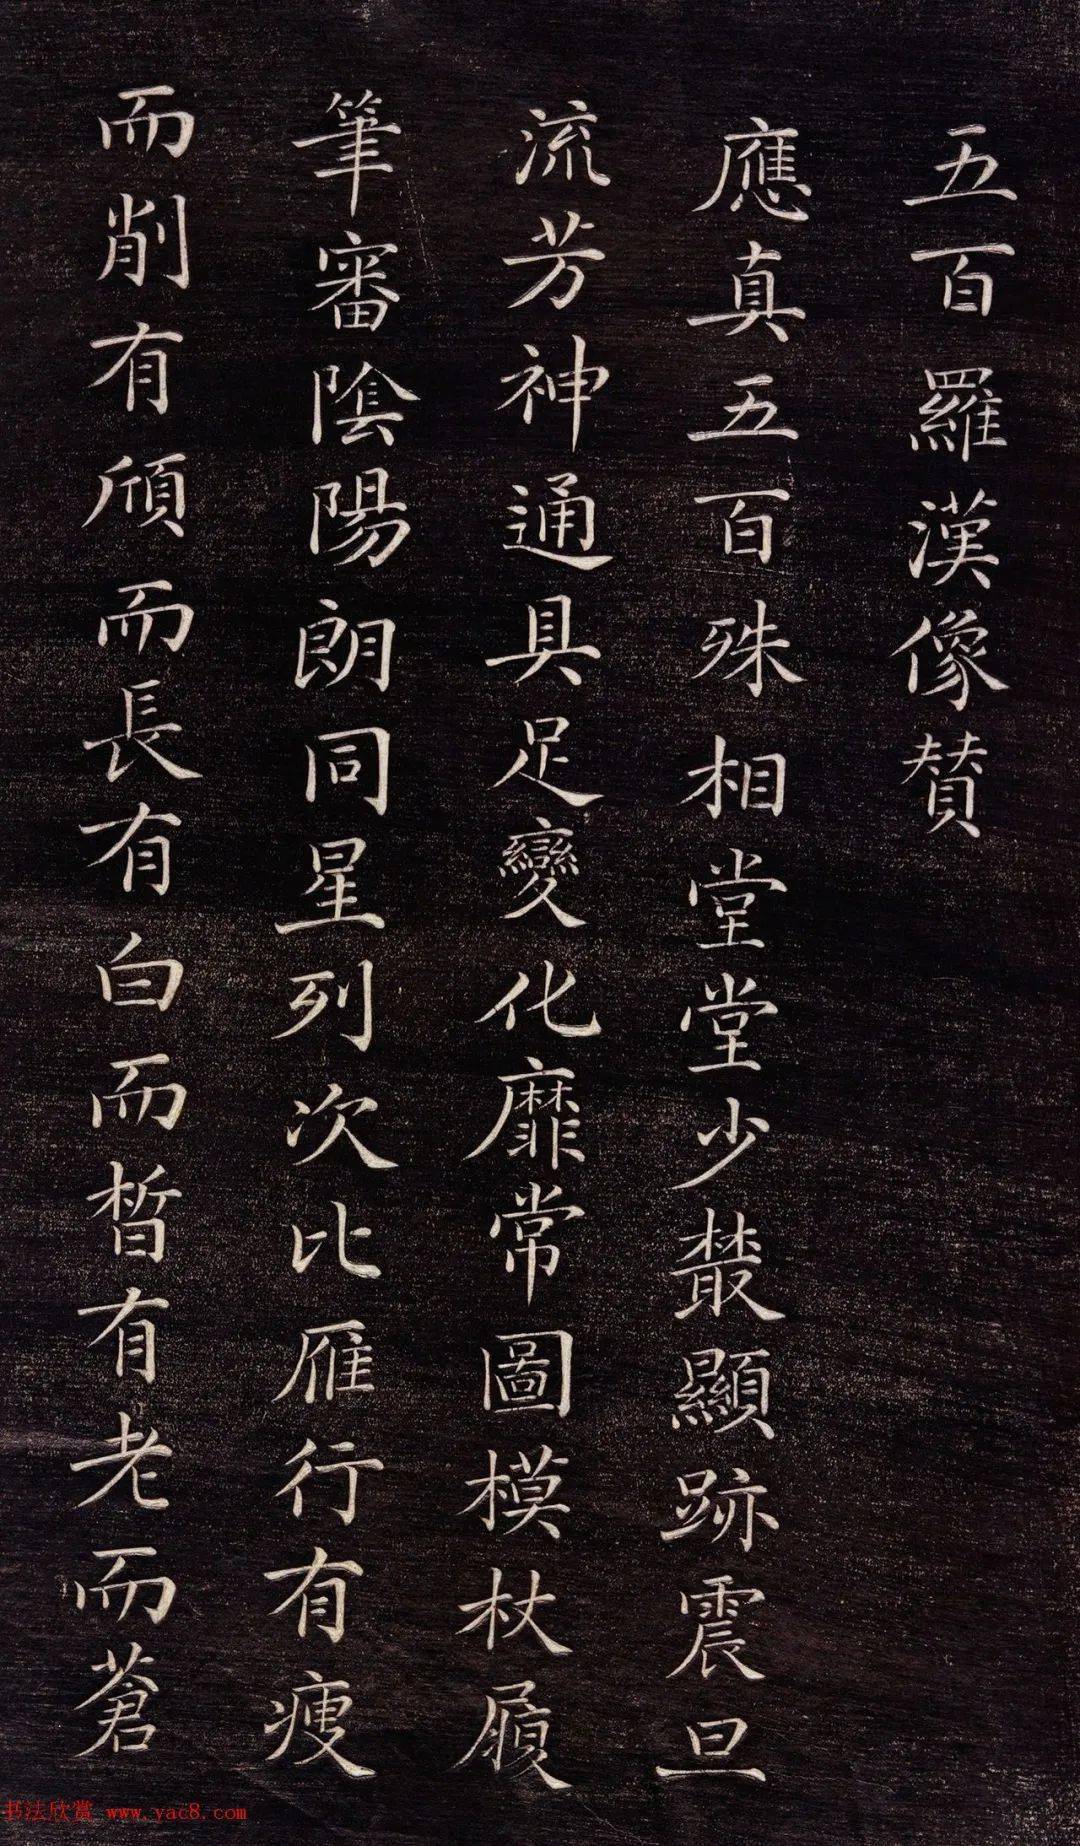 五百羅漢像贊
應真五百殊相堂堂少叢顯跡震旦
流芳神通具足變化靡常圖模杖屨
筆審陰陽朗同星列次比雁行有瘦
而削有頎而長有白而皙有老而蒼
书法欣赏 www.yac8.com